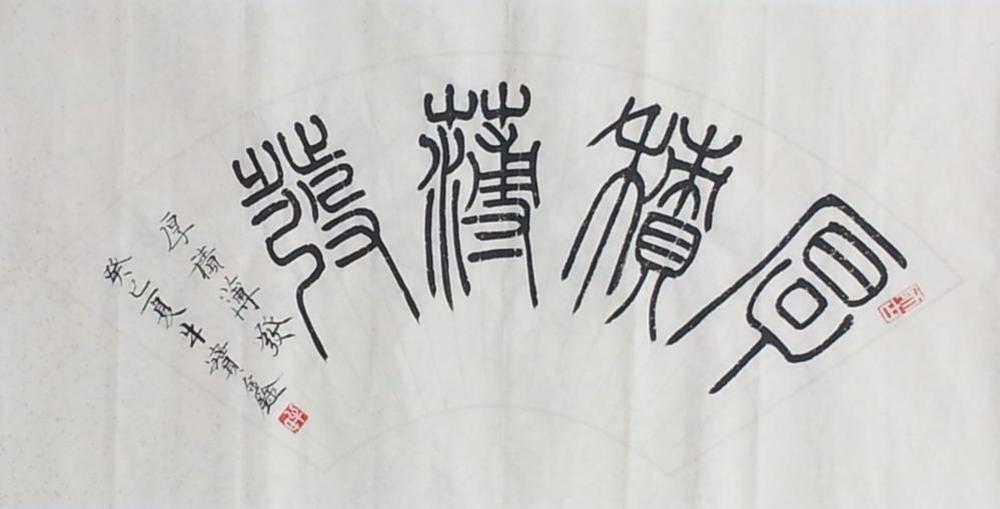 厚積薄發
厚積薄發
癸巳夏牛寶鑫